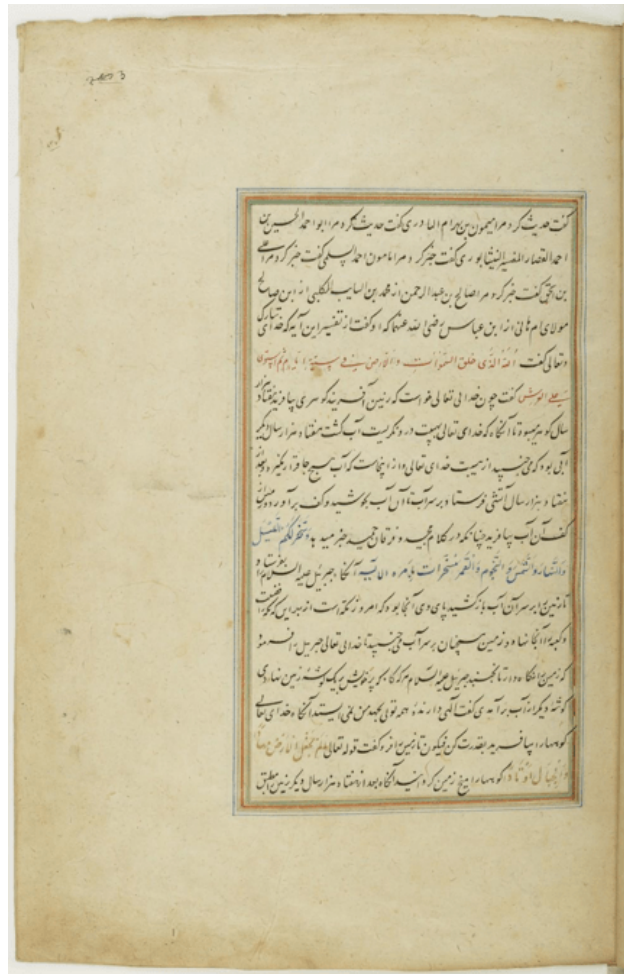 گفت حدیث کرد مرا میمون بن بهرام البادری گفت حدیث کرد مرا ابو احمد الحسین بن
احمد القصار المفسر النیشابوری گفت خبر کرد مرا مامون احمد السلمی گفت خبر کرد مرا علی
بن یحیی گفت خبر کرد مرا صالح بن عبد الرحمن از محمد بن السایب الکلبی از ابن صالح
مولای ام هانی از ابن عباس رضی الله عنهما که او گفت از تفسیر این آیه که خدای تبارک
وتعالی گفت الله الذی خلق السموات والارض فی ستة ایام ثم استوی
علی العرش گفت چون خدای تعالی خواست که زمین آفریند گوهری بیافرید هفتاد هزار
سال گوهر میبود تا آنگاه که خدای تعالی بهیبت در و نگریست آب گشت هفتاد هزار سال دیگر
آبی بود که می جنبید از هیبت خدای تعالی و از اینجاست که آب هیچ جا قرار نگیرد بعد از
هفتاد هزار سال آتشی فرستاد بر سر آب تا آن آب بجوشید و کف برآورد زمین از
کف آن آب بیافرید چنانکه در کلام مجید و فرقان حمید خبر میدهد وسخر لکم اللیل
والنهار والشمس والقمر والنجوم مسخرات بامره الآیه آنگاه جبریل علیه السلام
تا زمین را بر سر آن آب بازکشید پای وی آنجا بود که امروز مکه است از برای این که مکه
و کعبه آنجا نهاد و زمین همچنان بر سر آب می جنبید تا خدای تعالی جبریل را فرمود
که زمین را نگاه دار تا نجنبد جبریل علیه السلام هرگاه که پر خویش بر یک گوشه زمین نهادی
گوشه دیگر از آب برآمدی گفت الهی دارنده همه تویی بجهد من نمی ایستد آنگاه خدای تعالی
کوهها را بیافرید بقدرت کن فیکون تا زمین را فرو گفت قوله تعالی الم نجعل الارض مهادا
والجبال اوتادا کوهها را میخ زمین گردانید آنگاه بعد از هفتاد هزار سال دیگر زمین را مطبق